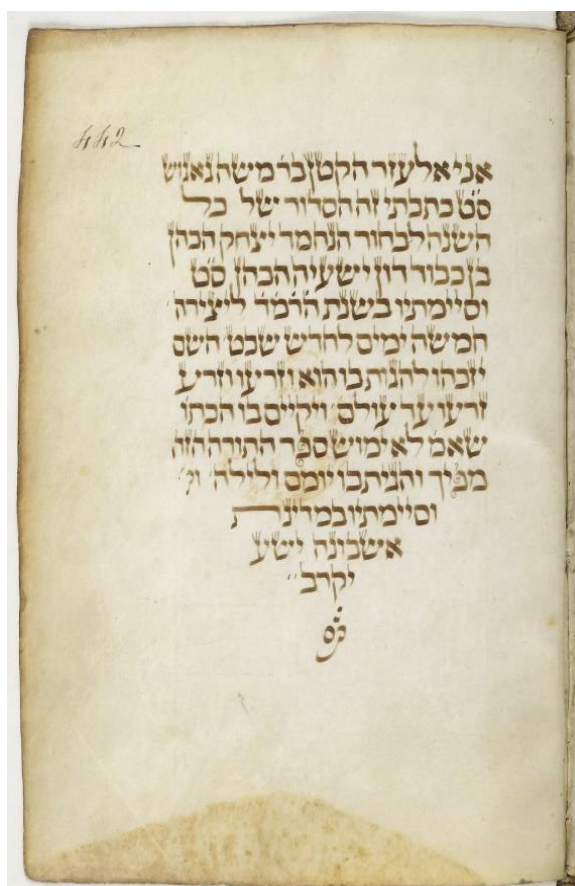 442
אני אלעזר הקטן בר משה גאגוש
ס״ט כתבתי זה הסדור של כל
השנה לבחור הנחמד יצחק הכהן
בן כבוד דון ישעיה הכהן ס״ט
וסיימתיו בשנת הרמ״ד ליצירה
חמשה ימים לחדש שבט השם
יזכהו להגות בו הוא וזרעו וזרע
זרעו עד עולם ויקיים בו הכתו׳
שאמ׳ לא ימוש ספר התורה הזה
מפיך והגית בו יומם ולילה וג׳
וסיימתיו במדינת
אשבונה ישע
יקרב